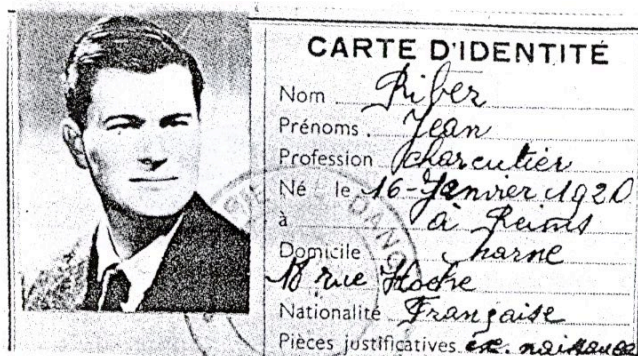 CARTE D'IDENTITÉ
Nom Riber
Prénoms. Jean
Profession charcutier
Né le 16-Janvier 1920
à à Reims
Domicile marne
18 rue Hoche
Nationalité Française
Pièces justificatives ex. naissance